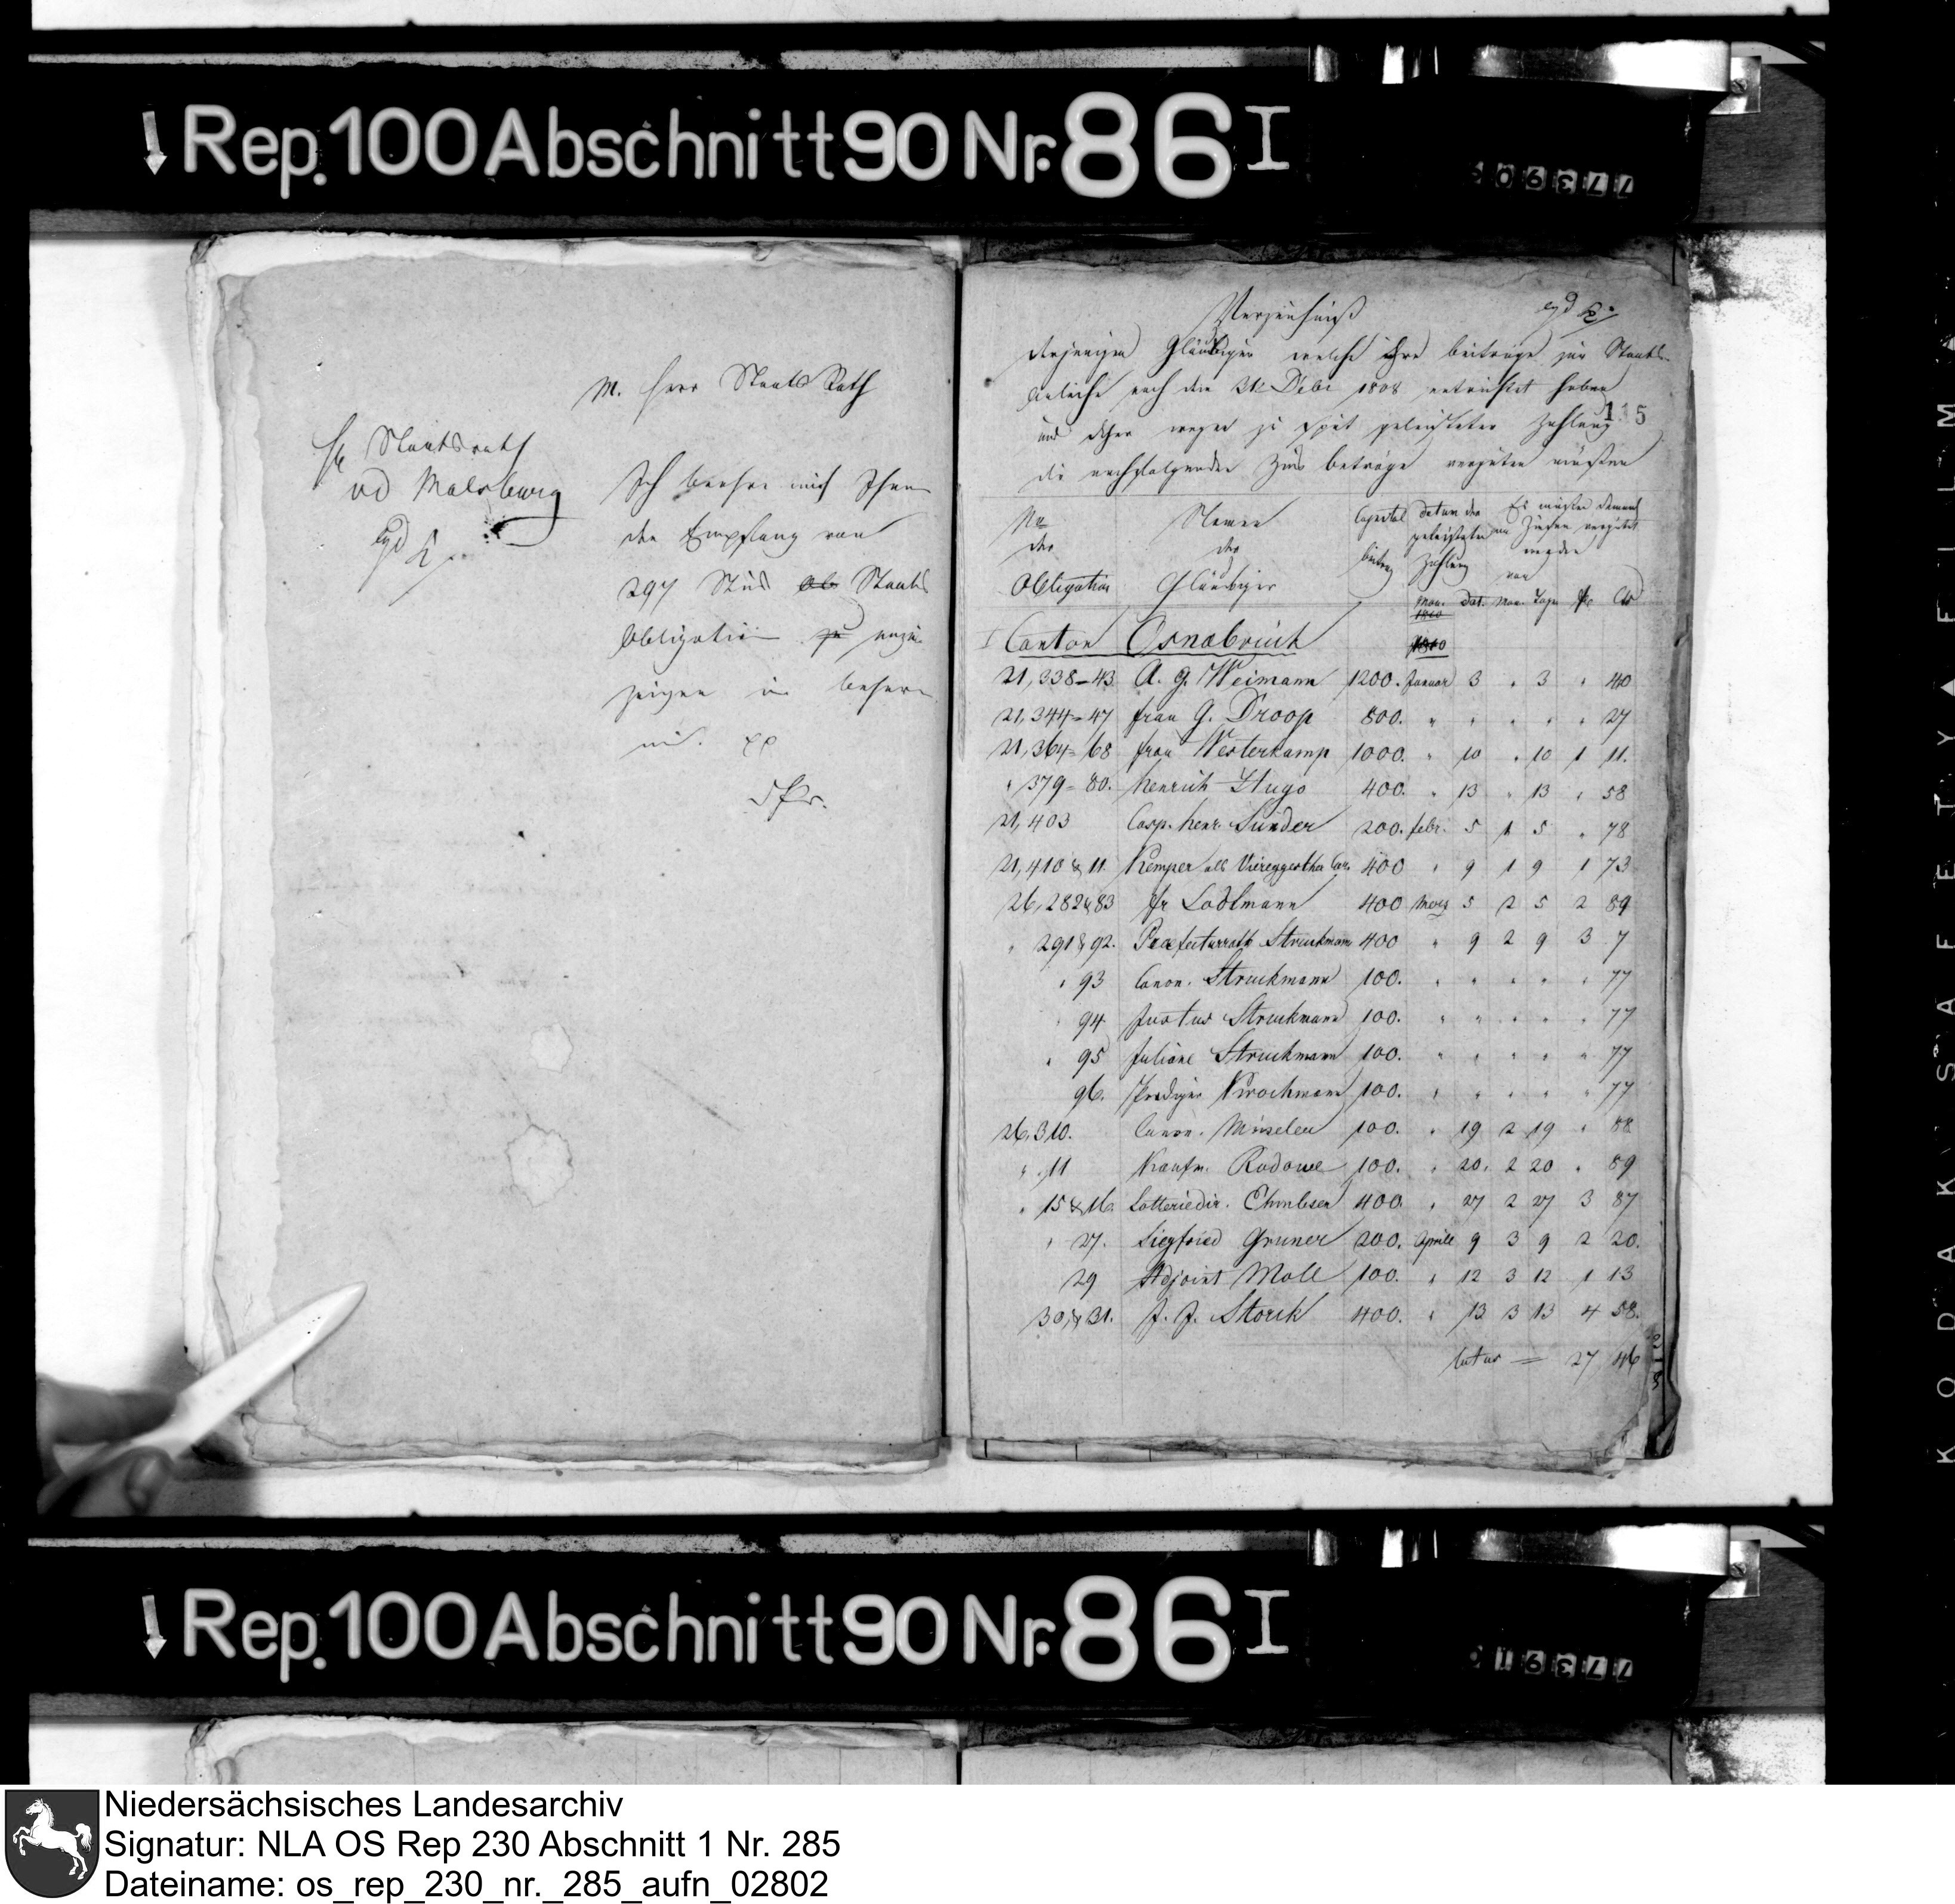 Rep. 100 Abschnitt 90 Nr. 86 I
M. Herr Staats Rath
H Staatsrath
vd Malsburg
Ich beehre mich Ihnen
den Empfang von
297 Stück Ob Staats
Obligation zu anzu-
zeigen in
Verzeichniß
derjenigen Gläubiger welche ihre beiträge zur Staats-
Anleihe nach dem 31 Debr 1808 entrichtet haben
115
und daher wegen zu spät geleisteter Zahlung
die nachfolgenden Zins beträge vergüten müßen
No der Obligation
Namen der Gläubiger
Capital
Datum der geleisteten Zahlung
Es müßen demnach an Zinsen vergütet werden von
Mon. Dat. Mon. Tage fr Ct
Canton Osnabrück
1810
21,338-43 A. G. Weimann 1200. Januar 3 " 3 " 40
21,344-47 frau G. Droop 800. " " " " " 27
21,364-68 frau Westerkamp 1000. " 10 " 10 1 11.
" 379-80. Henrich Hugo 400. " 13 " 13 " 58
21,403 Casp. Henr. Sunder 200. febr. 5 1 5 " 78
21,410 & 11. Kemper als 400 " 9 1 9 1 73
26,282&83 fr Lodtmann 400 Merz 5 2 5 2 89
" 291&92. Praefecturrath Struckmann 400 " 9 2 9 3 7
" 93 Canon. Struckmann 100. " " " " " 77
" 94 Justus Struckmann 100. " " " " " 77
" 95 Juliane Struckmann 100. " " " " " 77
96. Prediger 100. " " " " " 77
26,310. Canon. 100. " 19 2 19 " 88
" 11 Kaufm. 100. " 20. 2 20 " 89
" 15&16. Lotteriedir. Ehmbsen 400. " 27 2 27 3 87
" 27. Siegfried Gruner 200. Aprill 9 3 9 2 20.
29 Adjoint Moll 100. " 12 3 12 1 13
30,&31. J. J. Storck 400. " 13 3 13 4 58.
latus = 27 46
Rep. 100 Abschnitt 90 Nr. 86 I
KODAK SAFETY FILM
Niedersächsisches Landesarchiv
Signatur: NLA OS Rep 230 Abschnitt 1 Nr. 285
Dateiname: os_rep_230_nr._285_aufn_02802